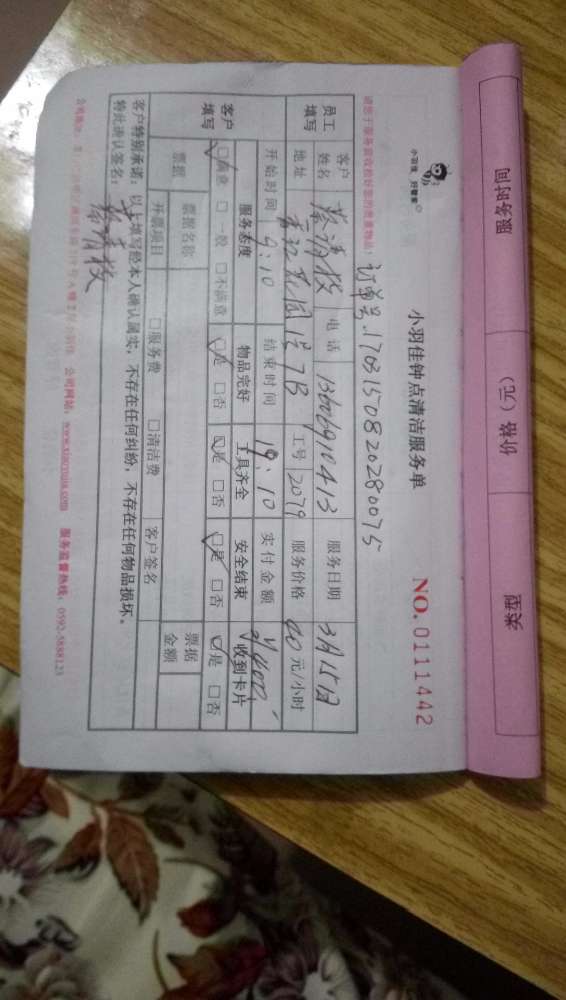 服务时间 价格（元） 类型
小羽佳 好管家
小羽佳钟点清洁服务单
NO. 0111442
请您于服务前收捡好您的贵重物品：订单号:1703150820280075
员工填写 客户姓名 电话 13606910413 服务日期 3月15日
地址 1号7B 工号 2079 服务价格 40元/小时
开始时间 9:10 结束时间 19:10 实付金额
客户填写 服务态度 物品完好 工具齐全 安全结束 收到卡片
☑满意 □一般 □不满意 ☑是 □否 ☑是 □否 ☑是 □否 ☑是 □否
票据 票据名称 □服务费 □清洁费 客户签名 票据金额
开票项目
客户特别承诺：以上填写经本人确认属实，不存在任何纠纷，不存在任何物品损坏。
特此确认签名：
公司网站：www.xiaoyujia.com 服务监督热线：0592-5888123